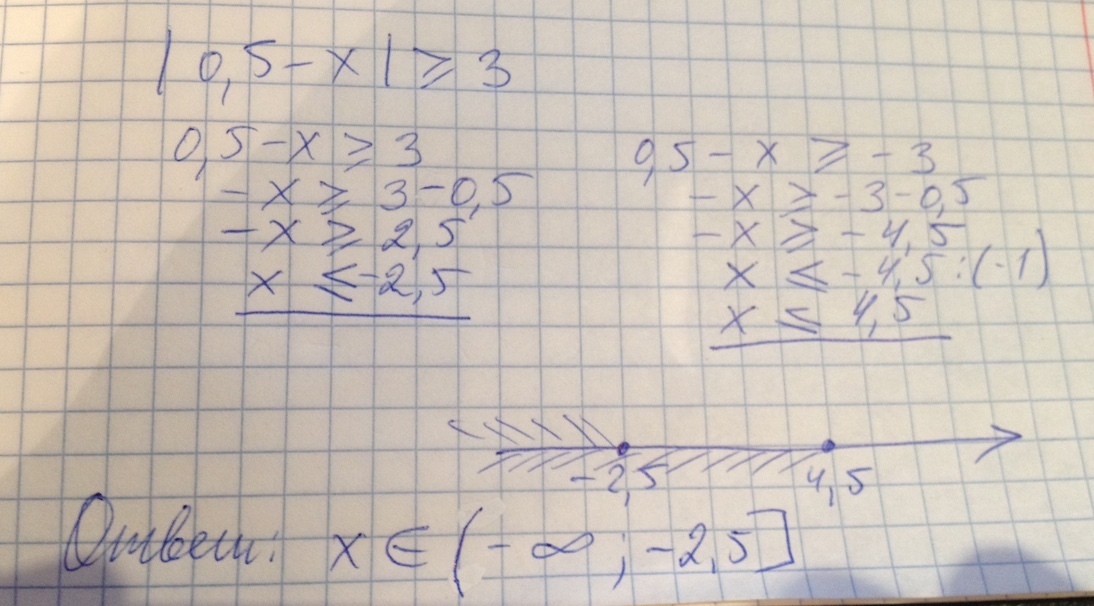 |0,5-x|≥3
0,5-x≥3
-x≥3-0,5
-x≥2,5
x≤-2,5
0,5-x≥-3
-x≥-3-0,5
-x≥-4,5
x≤-4,5:(-1)
x≤4,5
-2,5 4,5
Ответ: x∈(-∞;-2,5]